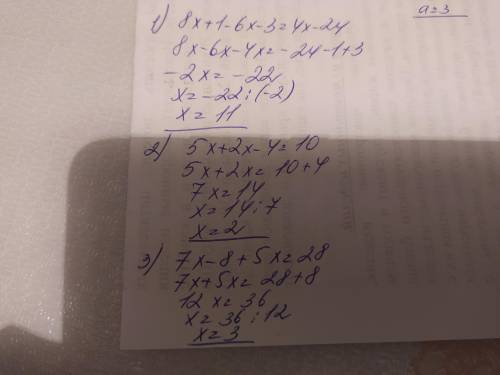 a=3
1) 8x+1-6x-3=4x-24
8x-6x-4x=-24-1+3
-2x=-22
x=-22:(-2)
x=11
2) 5x+2x-4=10
5x+2x=10+4
7x=14
x=14:7
x=2
3) 7x-8+5x=28
7x+5x=28+8
12x=36
x=36:12
x=3